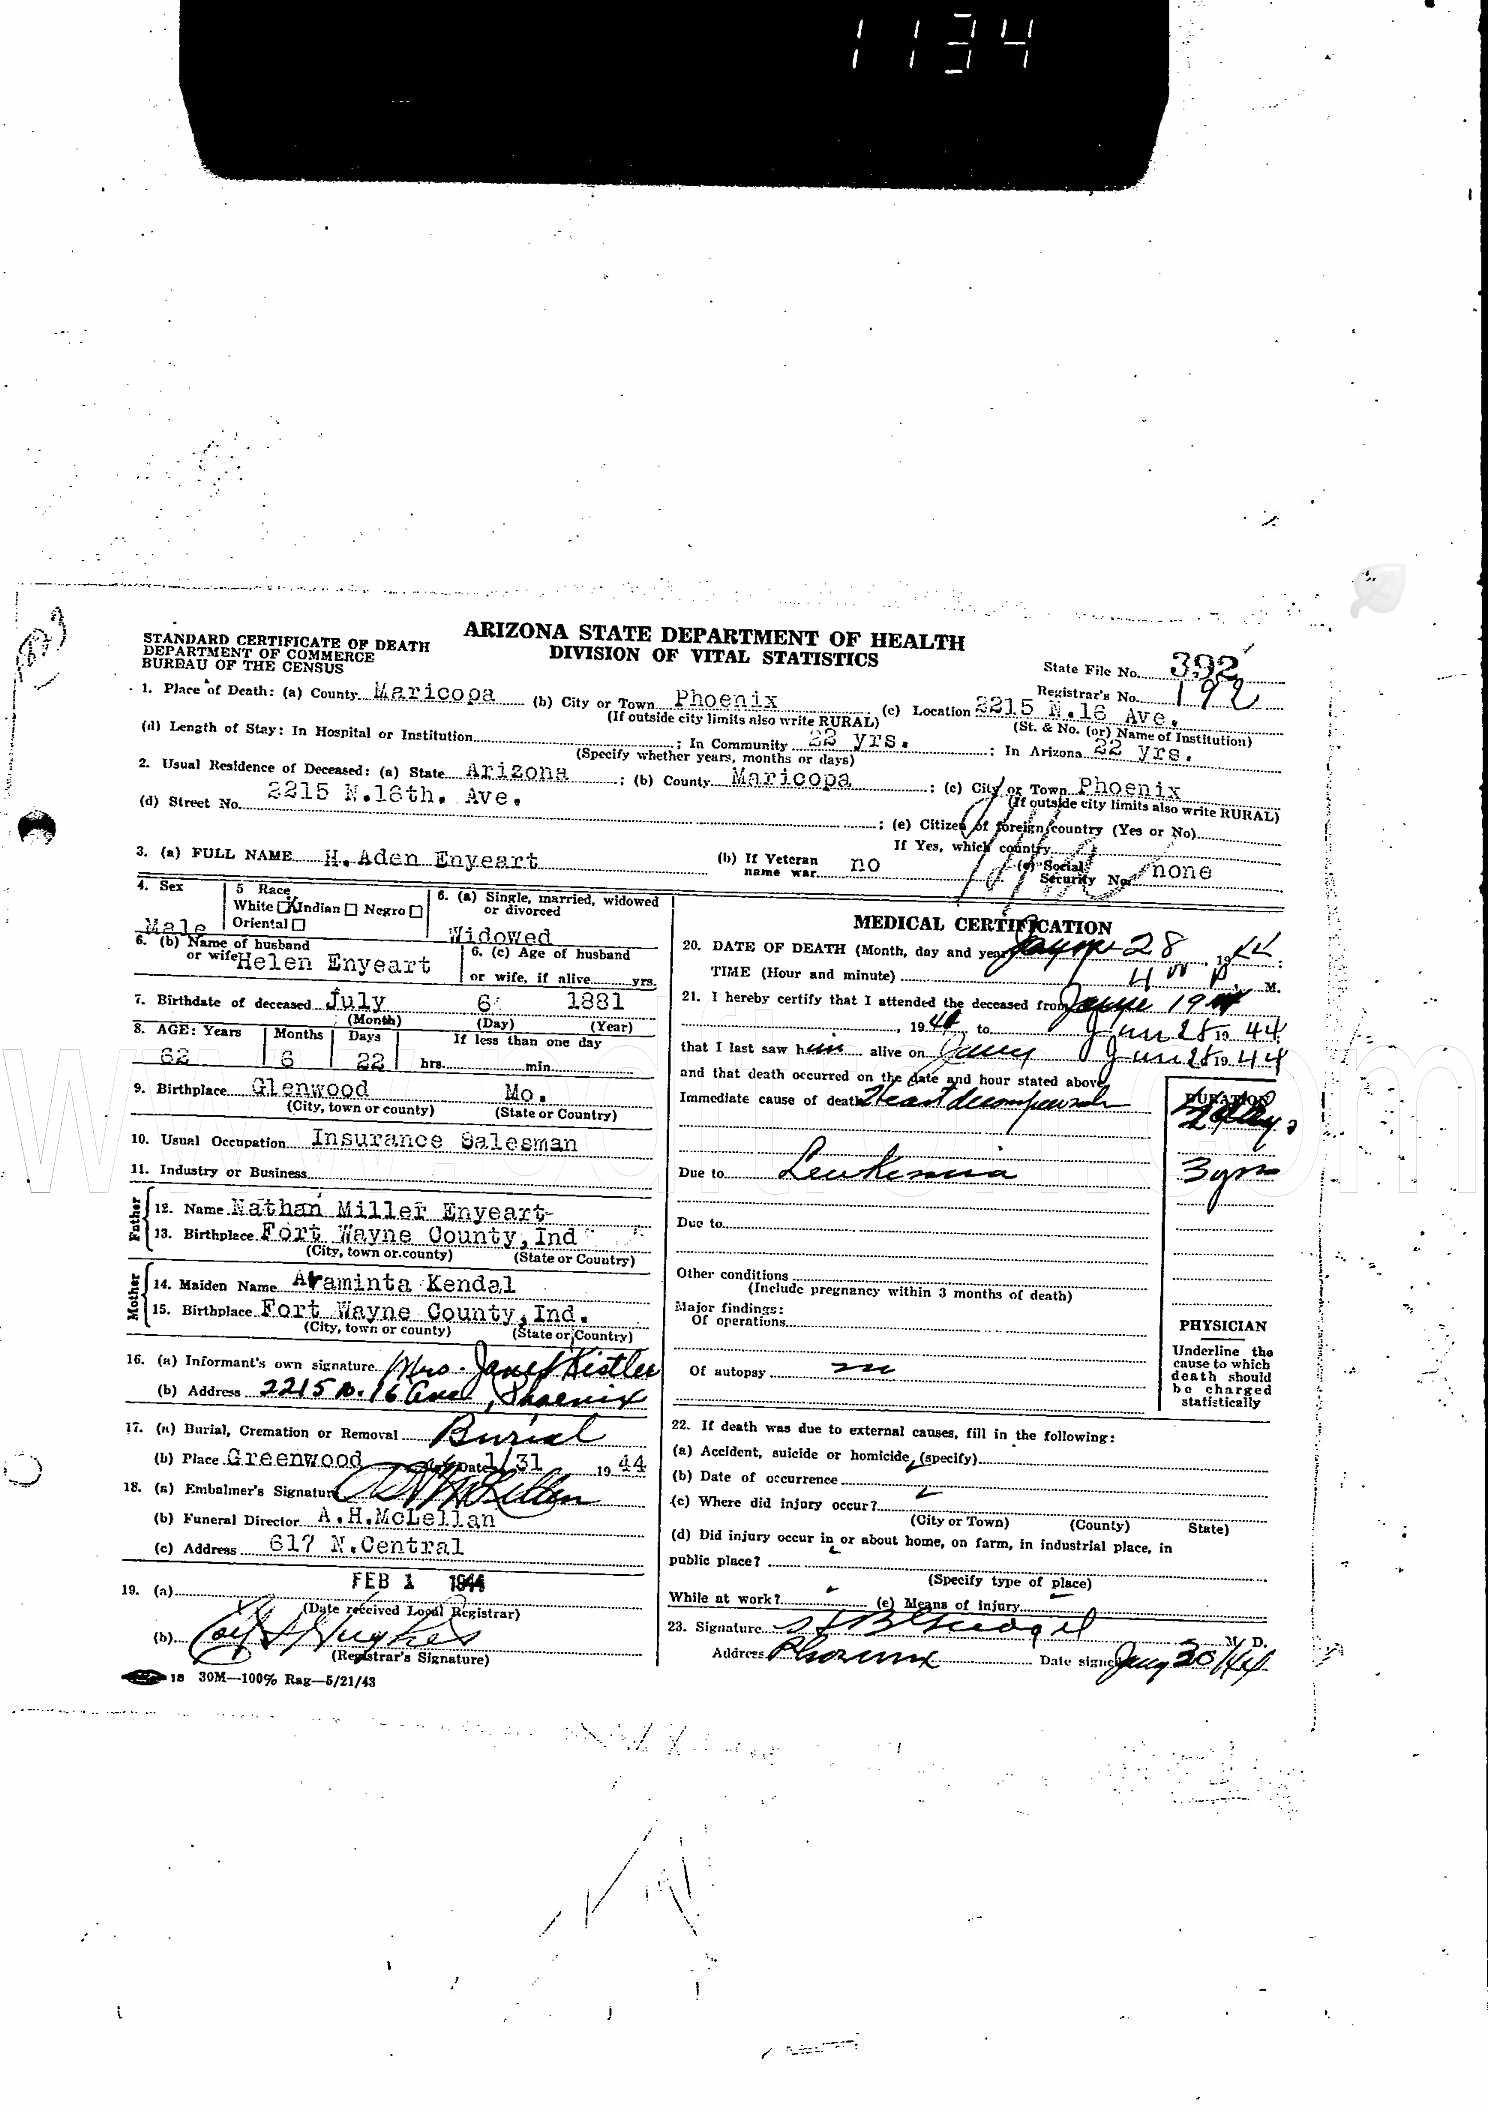 1134
STANDARD CERTIFICATE OF DEATH
DEPARTMENT OF COMMERCE
BUREAU OF THE CENSUS
ARIZONA STATE DEPARTMENT OF HEALTH
DIVISION OF VITAL STATISTICS
State File No. 392
Registrar's No. 192
1. Place of Death: (a) County Maricopa (b) City or Town Phoenix (c) Location 2215 N.16 Ave.
(If outside city limits also write RURAL) (St. & No. (or) Name of Institution)
(d) Length of Stay: In Hospital or Institution ; In Community 22 yrs. : In Arizona 22 yrs.
(Specify whether years, months or days)
2. Usual Residence of Deceased: (a) State Arizona ; (b) County Maricopa ; (c) City or Town Phoenix
(If outside city limits also write RURAL)
(d) Street No. 2215 N.16th. Ave. ; (e) Citizen of foreign country (Yes or No)
If Yes, which country
3. (a) FULL NAME H. Aden Enyeart (b) If Veteran name war no (c) Social Security No. none
4. Sex Male
5 Race White X Indian Negro Oriental
6. (a) Single, married, widowed or divorced Widowed
6. (b) Name of husband or wife Helen Enyeart
6. (c) Age of husband or wife, if alive yrs.
7. Birthdate of deceased July 6 1881
(Month) (Day) (Year)
8. AGE: Years Months Days If less than one day
62 6 22 hrs. min.
9. Birthplace Glenwood Mo.
(City, town or county) (State or Country)
10. Usual Occupation Insurance Salesman
11. Industry or Business
Father
12. Name Nathan Miller Enyeart
13. Birthplace Fort Wayne County, Ind
(City, town or county) (State or Country)
Mother
14. Maiden Name Araminta Kendal
15. Birthplace Fort Wayne County, Ind.
(City, town or county) (State or Country)
16. (a) Informant's own signature Mrs. Janet Kistler
(b) Address 2215 N. 16 Ave, Phoenix
17. (a) Burial, Cremation or Removal Burial
(b) Place Greenwood Date 1/31 1944
18. (a) Embalmer's Signature
(b) Funeral Director A.H.McLellan
(c) Address 617 N.Central
19. (a) FEB 1 1944
(Date received Local Registrar)
(b) Hughes
(Registrar's Signature)
18 30M—100% Rag—5/21/43
MEDICAL CERTIFICATION
20. DATE OF DEATH (Month, day and year) 28 1944
TIME (Hour and minute) 4 00 P M.
21. I hereby certify that I attended the deceased from
, 1944, to 28 1944
that I last saw him alive on 28 1944
and that death occurred on the date and hour stated above
DURATION
Immediate cause of death Heart decompensation
Due to Leukemia 3 yrs
Due to
Other conditions
(Include pregnancy within 3 months of death)
Major findings:
Of operations
Of autopsy no
PHYSICIAN
Underline the
cause to which
death should
be charged
statistically
22. If death was due to external causes, fill in the following:
(a) Accident, suicide or homicide, (specify)
(b) Date of occurrence
(c) Where did injury occur?
(City or Town) (County) State)
(d) Did injury occur in or about home, on farm, in industrial place, in
public place?
(Specify type of place)
While at work? (e) Means of injury
23. Signature M. D.
Address Phoenix Date signed Jany 30/44